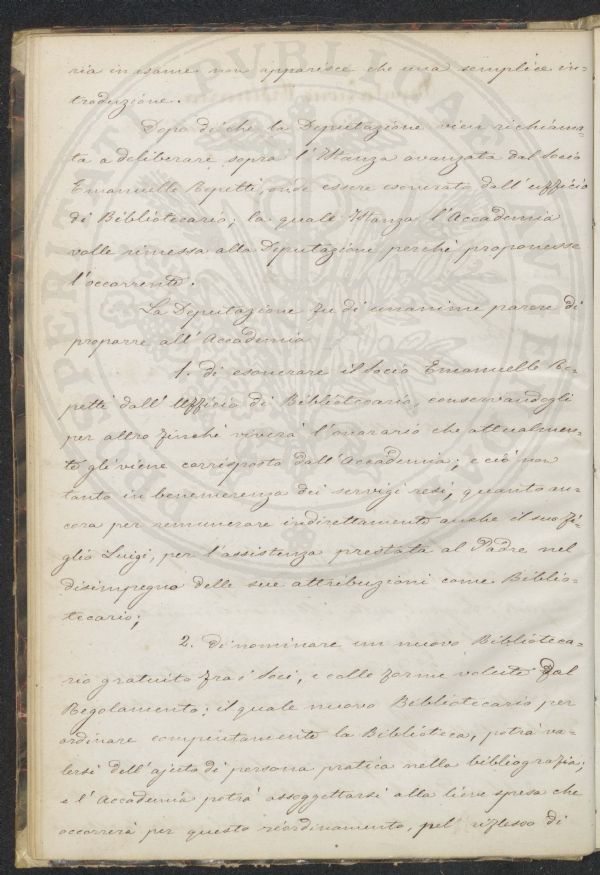 ria in esame non apparisce che una semplice in=
troduzione.
Dopo di che la Deputazione vien richiama=
ta a deliberare sopra l'Istanza avanzata dal Socio
Emanuelle Repetti, onde essere esonerato dall'uffizio
di Bibliotecario; la quale Istanza l'Accademia
volle rimessa alla Deputazione perchè proponesse
l'occorrente.
La Deputazione fu di unanime parere di
proporre all'Accademia
1. di esonerare il Socio Emanuelle Re=
petti dall'Uffizio di Bibliotecario, conservandogli
per altro finchè viverà l'onorario che attualmen=
te gli viene corrisposto dall'Accademia; e ciò non
tanto in benemerenza dei servigi resi, quanto an=
cora per remunerare indirettamente anche il suo Fi=
glio Luigi, per l'assistenza prestata al Padre nel
disimpegno delle sue attribuzioni come Biblio=
tecario;
2. Di nominare un nuovo Biblioteca=
rio gratuito fra i Soci, e colle forme volute dal
Regolamento: il quale nuovo Bibliotecario per
ordinare compiutamente la Biblioteca, potrà va=
lersi dell'ajuto di persona pratica nella bibliografia;
e l'Accademia potrà assoggettarsi alla lieve spesa che
occorrerà per questo riordinamento, pel riflesso di
PROSPERITATI PUBLICAE AUGENDAE